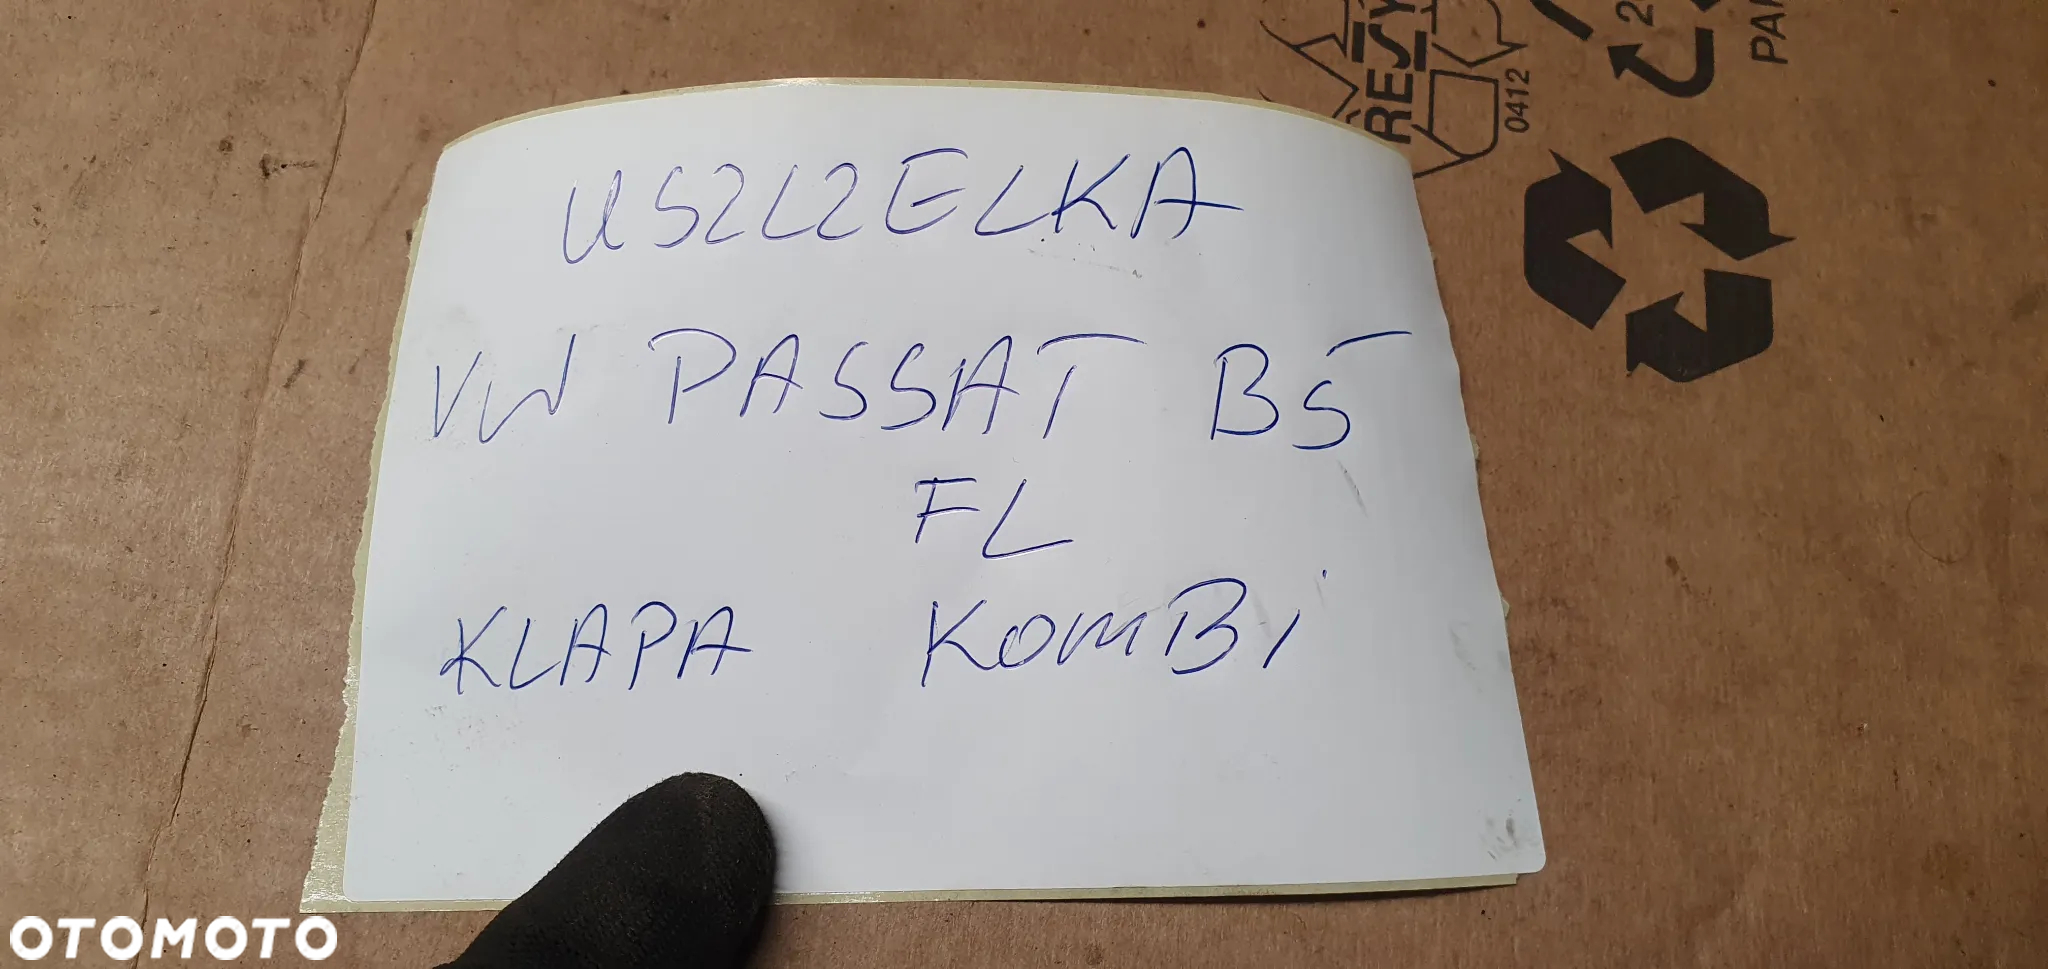 USZCZELKA
VW PASSAT B5
FL
KLAPA KOMBi
RESY
0412
PAP
OTOMOTO